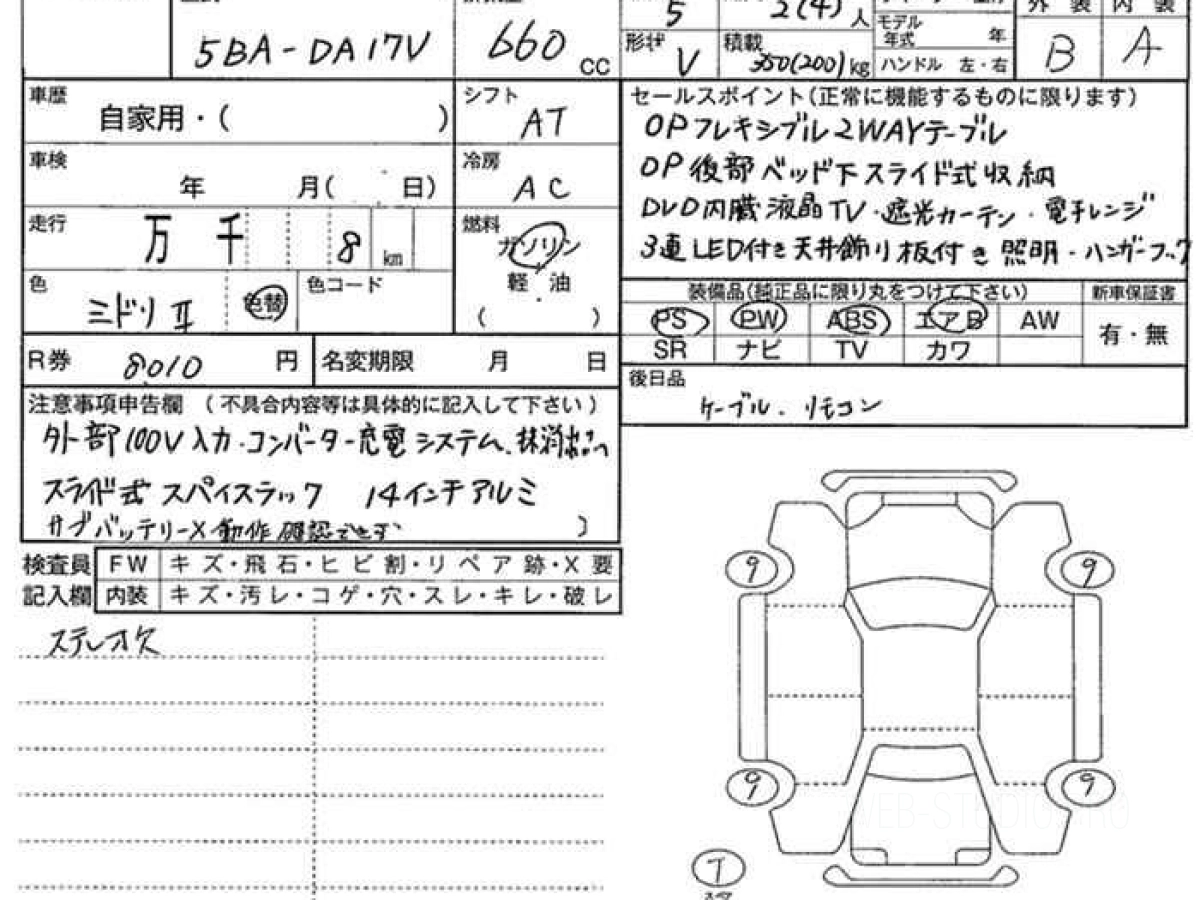 5
2(4) 人
モデル年式 年
外装 内装
5BA-DA17V
660 CC
形状 V
積載 350(200)kg
ハンドル 左・右
B
A
車歴
自家用・( )
シフト
AT
セールスポイント(正常に機能するものに限ります)
OPフレキシブル2WAYテーブル
OP後部ベッド下スライド式収納
DVD内蔵液晶TV・遮光カーテン・電子レンジ
3連LED付き天井飾り板付き照明・ハンガーフック
車検
年 月( 日)
冷房
AC
走行
万 千 8 km
燃料
ガソリン
軽油
( )
色
ミドリII
色替
色コード
装備品(純正品に限り丸をつけて下さい)
新車保証書
PS PW ABS エアB AW
SR ナビ TV カワ
有・無
R券 8010 円
名変期限 月 日
後日品
ケーブル.リモコン
注意事項申告欄 (不具合内容等は具体的に記入して下さい)
外部100V入力・コンバーター充電システム、抹消
スライド式スパイスラック 14インチアルミ
サブバッテリーX動作確認できず )
検査員記入欄
FW キズ・飛石・ヒビ割・リペア跡・X要
内装 キズ・汚レ・コゲ・穴・スレ・キレ・破レ
ステレオ欠
9
9
9
9
T
WEB-STUDIO.PRO